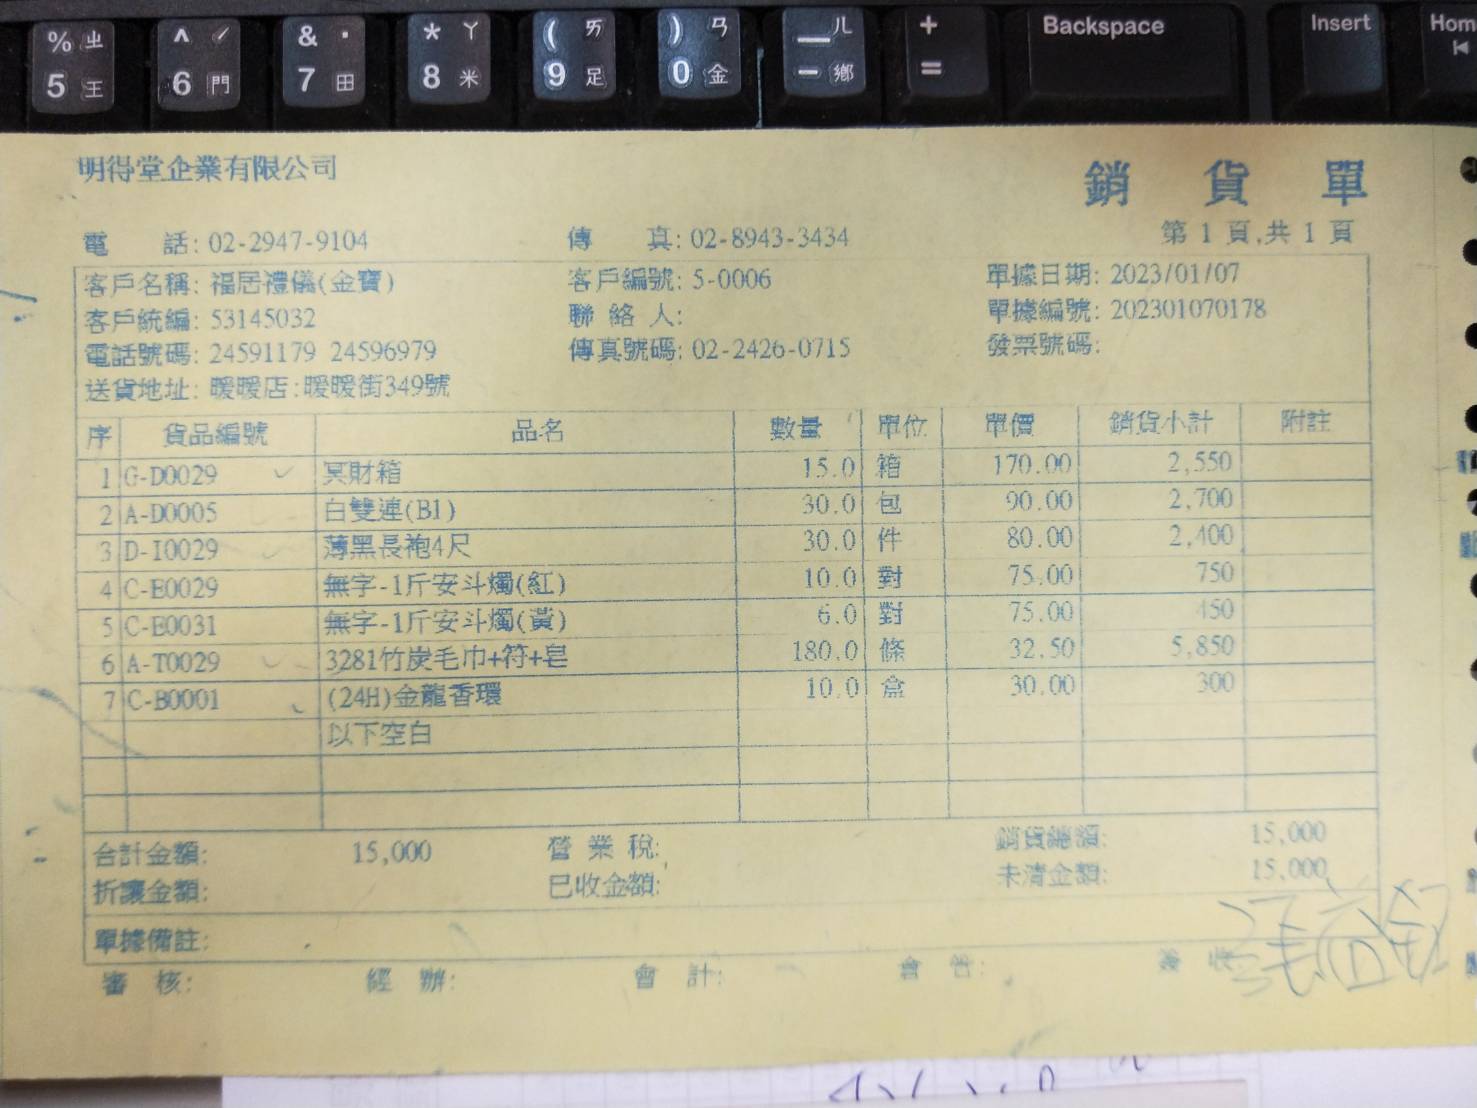 % ㄓ ^ ˊ & ˙ * ㄚ ( ㄞ ) ㄢ — ㄦ + Backspace Insert Hom
5 王 6 門 7 田 8 米 9 足 0 金 - 鄉 =
明得堂企業有限公司
銷 貨 單
第 1 頁,共 1 頁
電 話: 02-2947-9104 傳 真: 02-8943-3434
客戶名稱: 福居禮儀(金寶) 客戶編號: 5-0006 單據日期: 2023/01/07
客戶統編: 53145032 聯 絡 人: 單據編號: 202301070178
電話號碼: 24591179 24596979 傳真號碼: 02-2426-0715 發票號碼:
送貨地址: 暖暖店:暖暖街349號
序 貨品編號 品名 數量 單位 單價 銷貨小計 附註
1 G-D0029 冥財箱 15.0 箱 170.00 2,550
2 A-D0005 白雙連(B1) 30.0 包 90.00 2,700
3 D-I0029 薄黑長袍4尺 30.0 件 80.00 2,400
4 C-E0029 無字-1斤安斗燭(紅) 10.0 對 75.00 750
5 C-E0031 無字-1斤安斗燭(黃) 6.0 對 75.00 450
6 A-T0029 3281竹炭毛巾+符+皂 180.0 條 32.50 5,850
7 C-B0001 (24H)金龍香環 10.0 盒 30.00 300
以下空白
合計金額: 15,000 營 業 稅: 銷貨總額: 15,000
折讓金額: 已收金額: 未清金額: 15,000
單據備註:
審 核: 經 辦: 會 計: